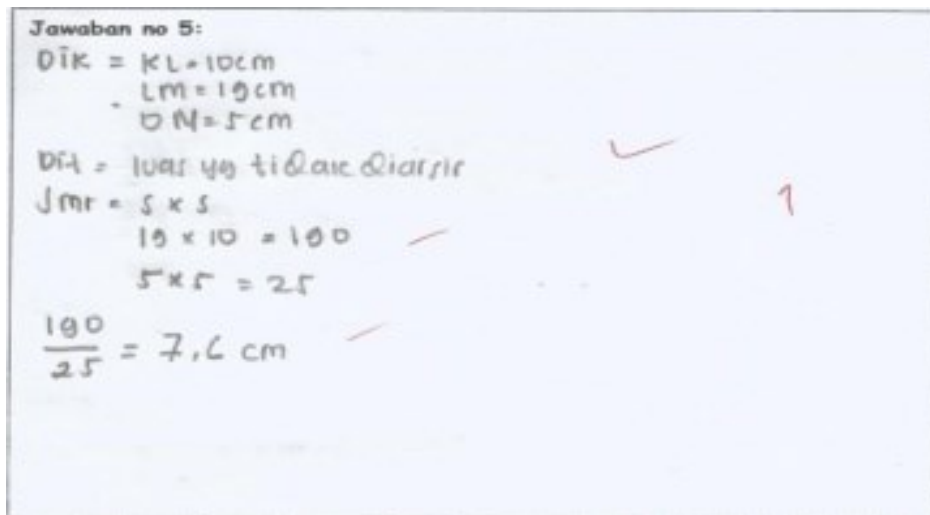 Jawaban no 5:
Dik = KL = 10 cm
LM = 19 cm
DN = 5 cm
Dit = luas yg tidak diarsir
Jwb = s x s
19 x 10 = 190
5 x 5 = 25
190
25 = 7,6 cm
1